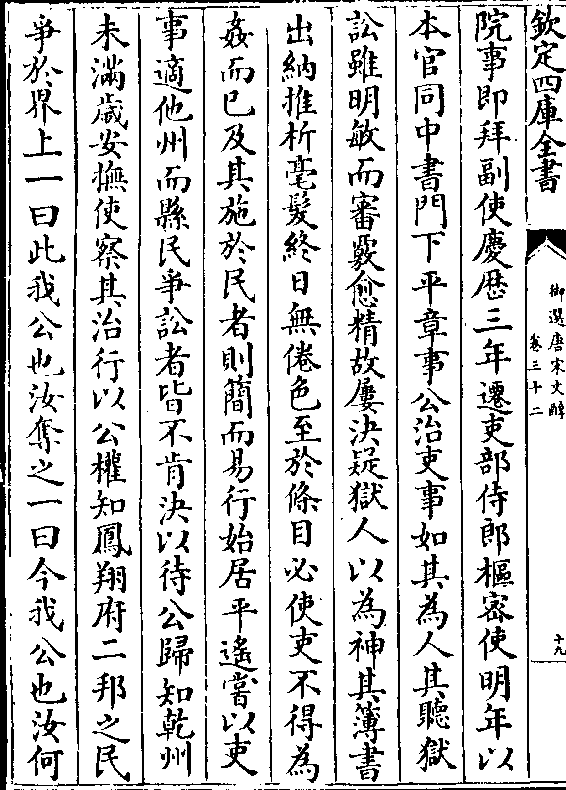 欽定四庫全書
御選唐宋文醇
卷三十二
十九
院事即拜副使慶厯三年遷吏部侍郎樞密使明年以
本官同中書門下平章事公治吏事如其為人其聽獄
訟雖明敏而審覈愈精故屢決疑獄人以為神其簿書
出納推析毫髮終日無倦色至於條目必使吏不得為
姦而已及其施於民者則簡而易行始居平遙嘗以吏
事適他州而縣民爭訟者皆不肯決以待公歸知乾州
未滿歲安撫使察其治行以公權知鳳翔府二邦之民
爭於界上一曰此我公也汝奪之一曰今我公也汝何